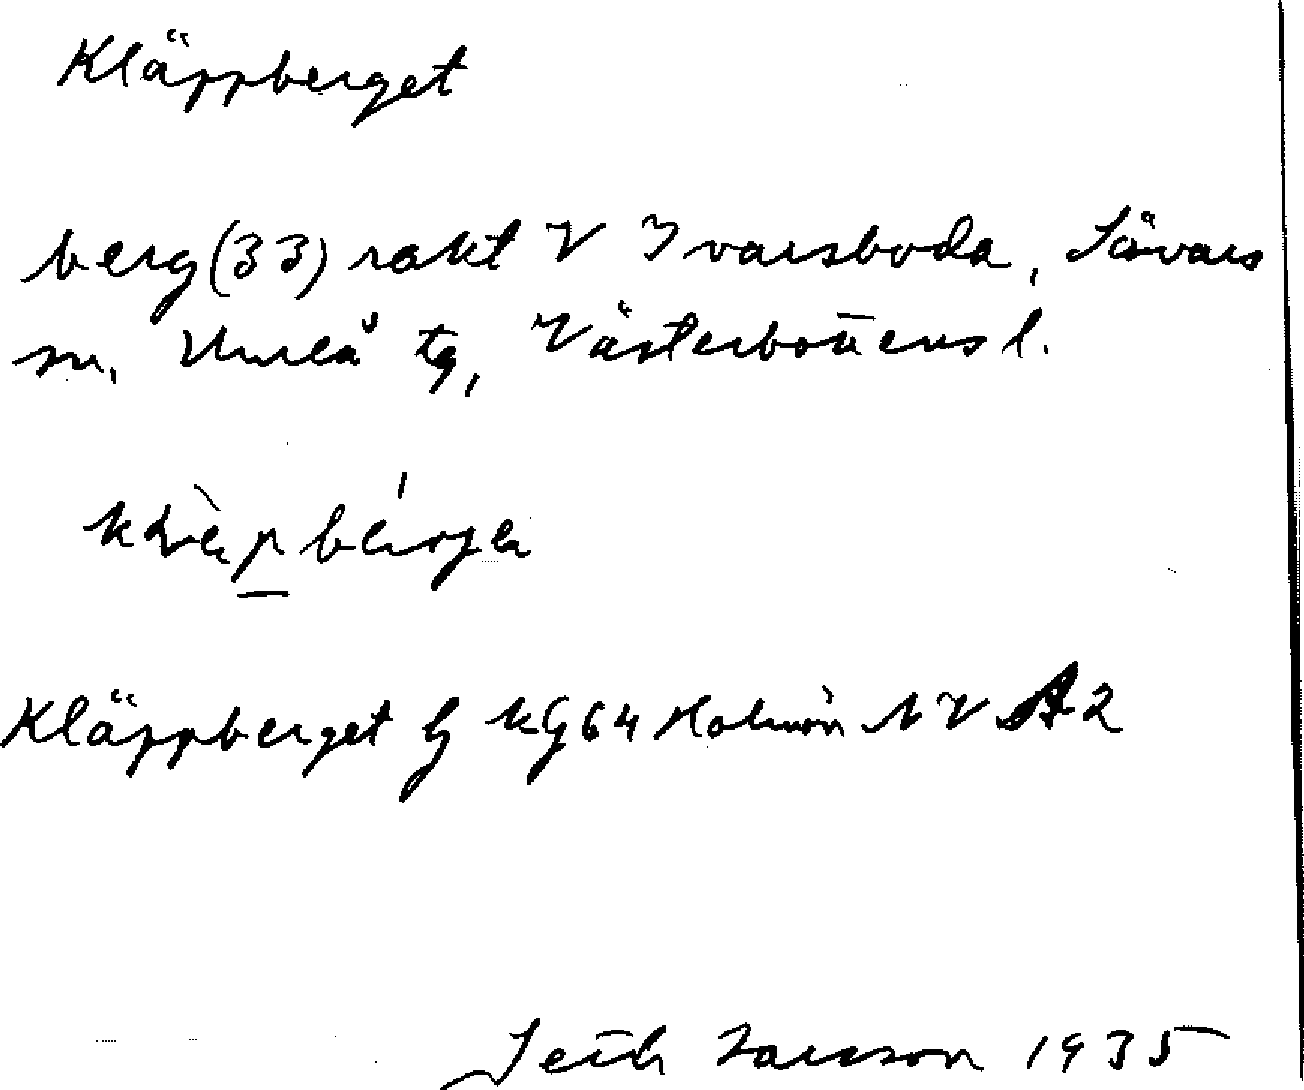 Kläppberget
berg (33) rakt V Ivarsboda, Sävars
sn, Umeå tg, Västerbottens l.
Kläppberget G KG64 Holmön NV A2
Larsson 1935